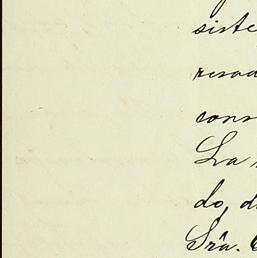 siste
resad
cons
La
do, d
Srâ.